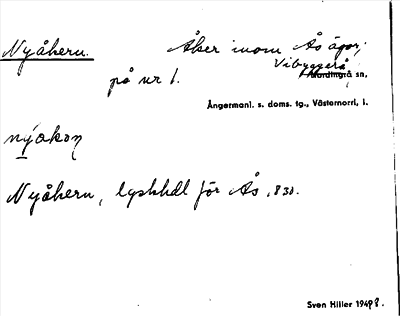 Nyåkern. Åker inom Ås ägor,
på nr 1. Vibyggerå
Nordingrå sn,
Ångermanl. s. doms. tg., Västernorrl. l.
nýakon
Nyåkern, lyskhdl för Ås, 830.
Sven Hiller 1948.